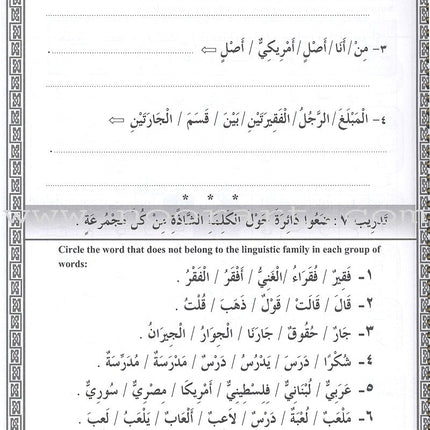 ٣- مِنْ/ أَنَا/ أَصْلٍ/ أَمْرِيكِيٌّ / أَصْلٍ ⇦
٤- الْمَبْلَغَ/ الرَّجُلُ/ الْفَقِيرَتَيْنِ/ بَيْنَ / قَسَمَ / الْجَارَتَيْنِ ⇦
* * *
تَدْرِيب ٧: ضَعُوا دَائِرَةً حَوْلَ الْكَلِمَةِ الشَّاذَّةِ مِنْ كُلِّ مَجْمُوعَةٍ .
Circle the word that does not belong to the linguistic family in each group of
words:
١- فَقِيرٌ/ فُقَرَاءُ /الْغَنِيُّ / أَفْقَرُ / الْفَقْرُ .
٢- قَالَ / قَالَتْ / قَوْلٌ / ذَهَبَ / قُلْتُ .
٣- جَارٌ / حُقُوقٌ / جَارَنَا / الْجِوَارُ / الْجِيرَانُ .
٤- شُكْرًا / دَرَسَ / يَدْرُسُ / دَرْسٌ / مَدْرَسَةٌ / مُدَرِّسَةٌ .
٥- عَرَبِيٌّ / لُبْنَانِيٌّ / فِلِسْطِينِيٌّ / أَمْرِيكَا / مِصْرِيٌّ / سُورِيٌّ .
٦- مَلْعَبٌ / لُعْبَةٌ / دَرْسٌ / لَاعِبٌ / أَلْعَابٌ / يَلْعَبُ / لَعِبَ .